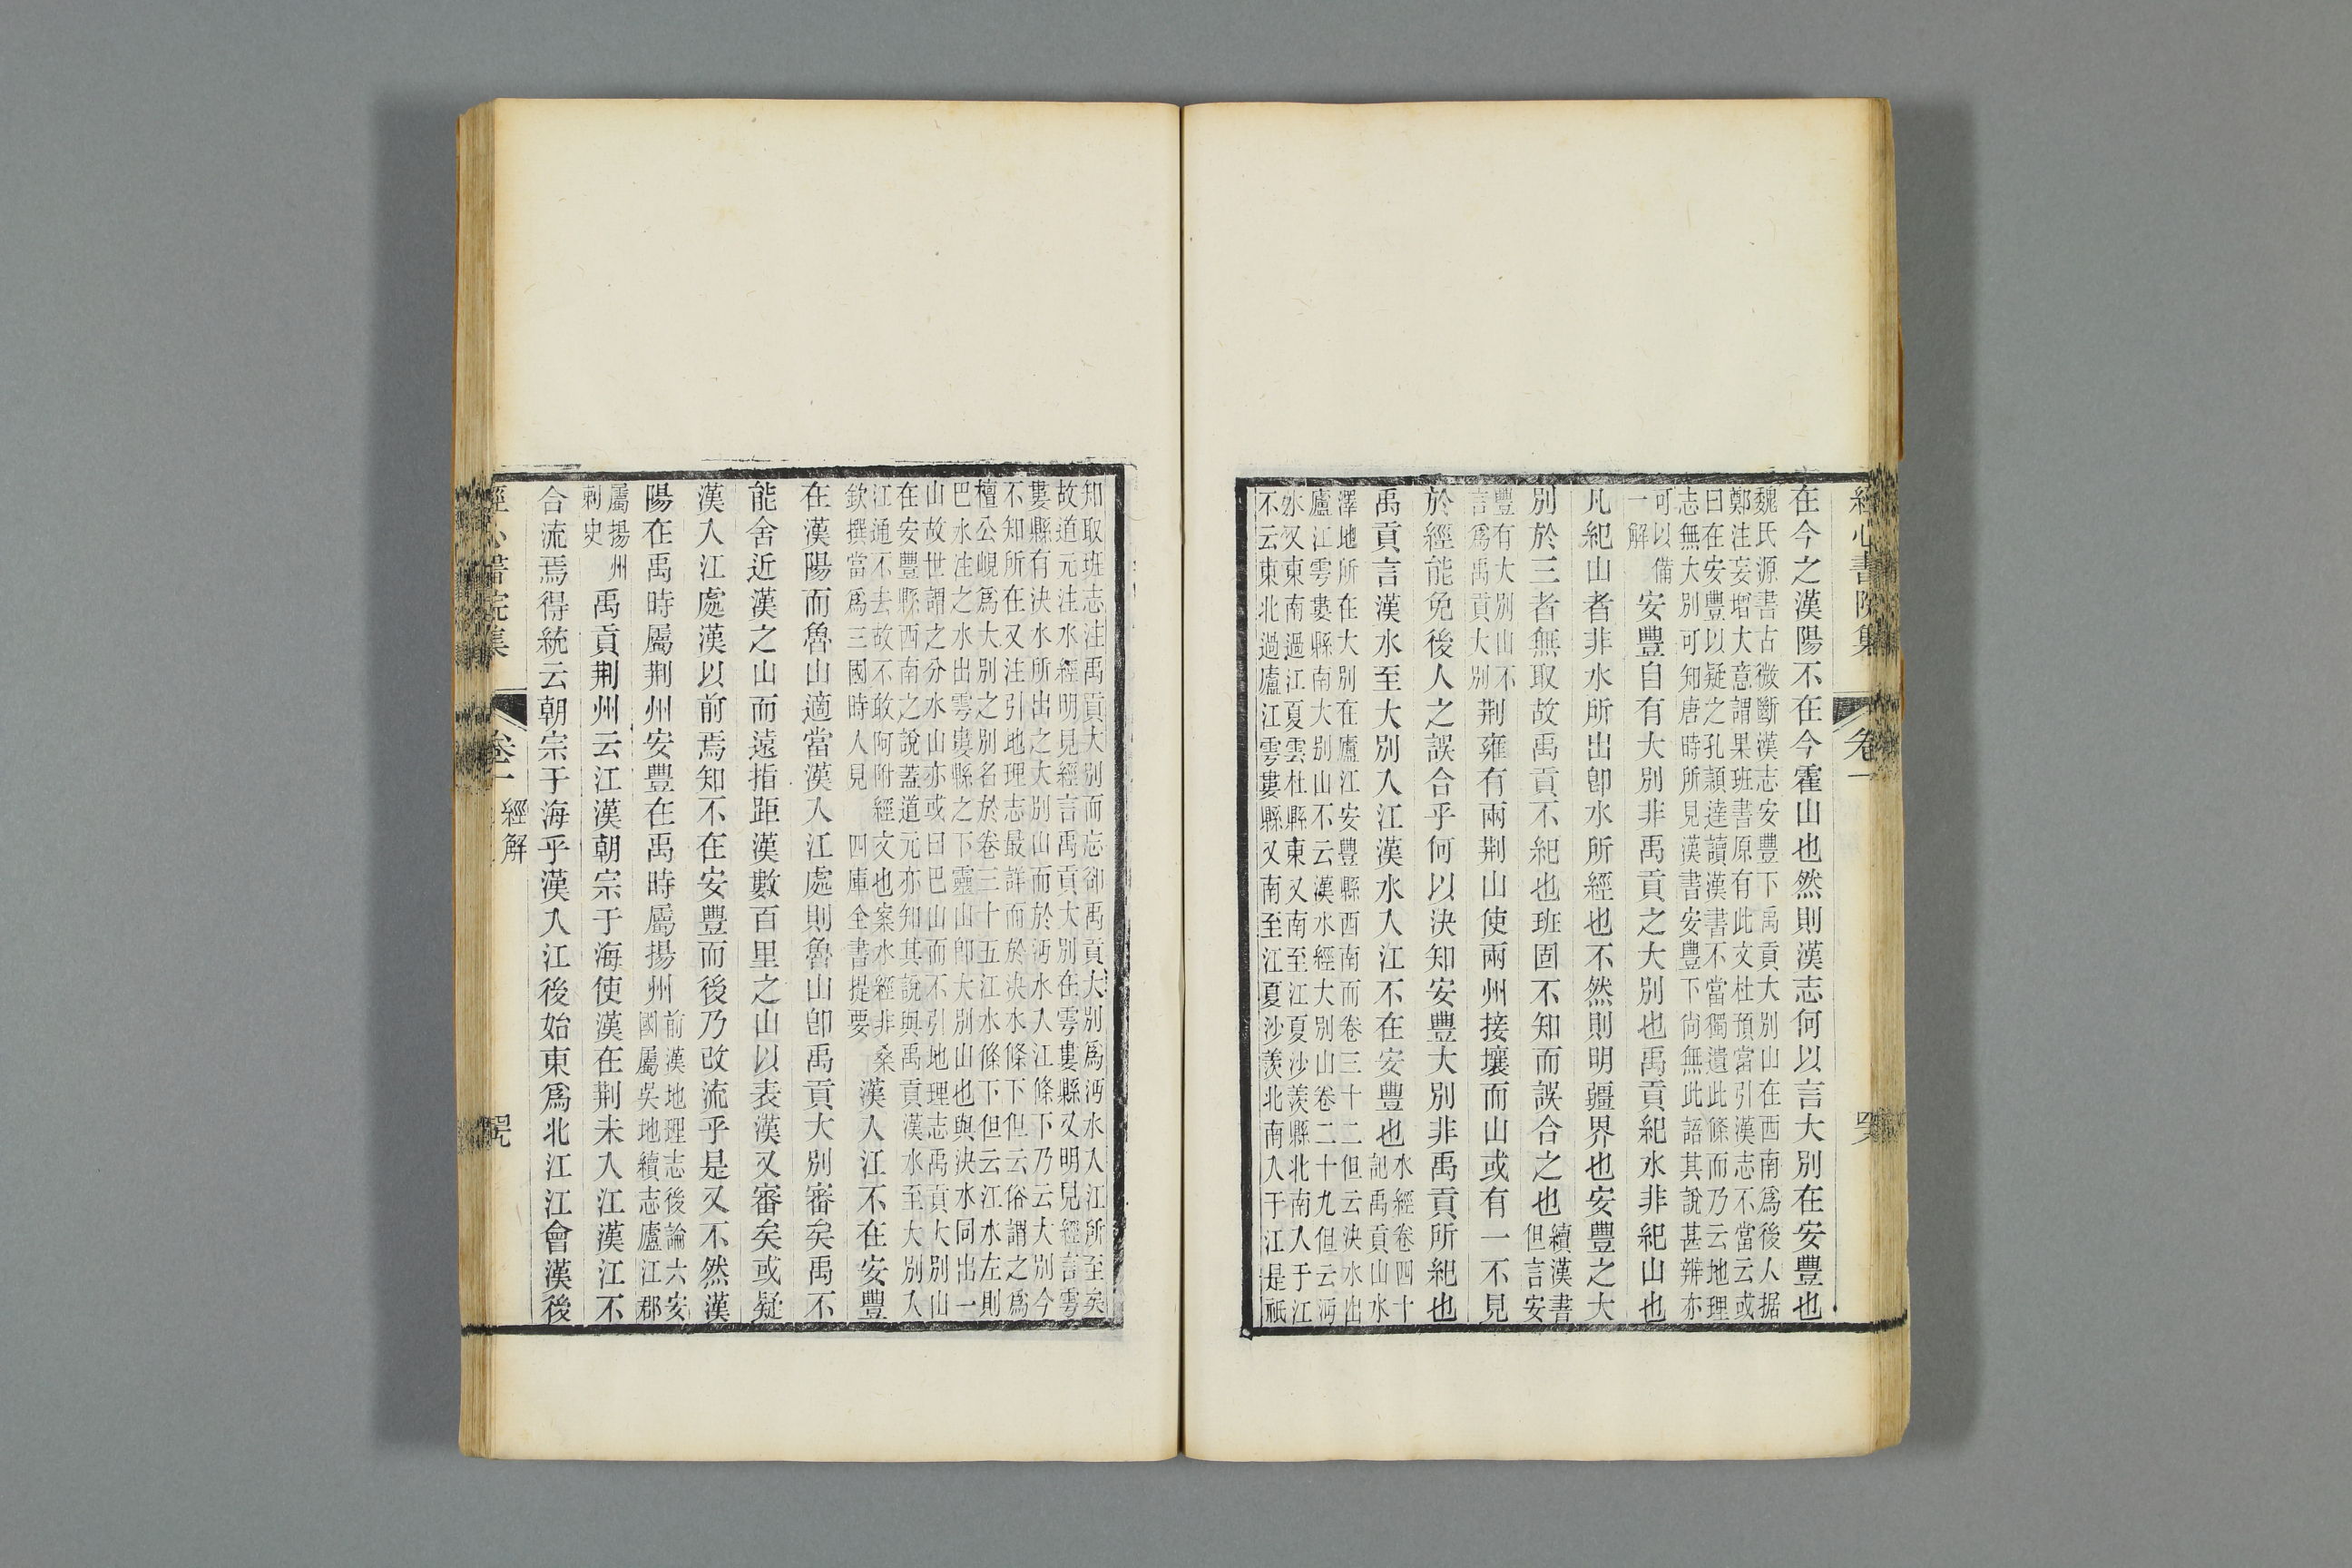 經心書院集
卷一
在今之漢陽不在今霍山也然則漢志何以言大別在安豐也
魏氏源書古微斷漢志安豐下禹貢大別山在西南爲後人据
鄭注妄增大意謂果班書原有此文杜預當引漢志不當云或
曰在安豐以疑之孔穎達讀漢書不當獨遺此條而乃云地理
志無大別可知唐時所見漢書安豐下尙無此語其說甚辨亦
可以備
一解
安豐自有大別非禹貢之大別也禹貢紀水非紀山也
凡紀山者非水所出卽水所經也不然則明疆界也安豐之大
別於三者無取故禹貢不紀也班固不知而誤合之也
續漢書
但言安
豐有大別山不
言爲禹貢大別
荆雍有兩荆山使兩州接壤而山或有一不見
於經能免後人之誤合乎何以決知安豐大別非禹貢所紀也
禹貢言漢水至大別入江漢水入江不在安豐也
水經卷四十
記禹貢山水
澤地所在大別在廬江安豐縣西南而卷三十二但云決水出
廬江雩婁縣南大別山不云漢水經大別山卷二十九但云沔
水又東南過江夏雲杜縣東又南至江夏沙羨縣北南入于江
不云東北過廬江雩婁縣又南至江夏沙羨北南入于江是祇
知取班志注禹貢大別而忘卻禹貢大別爲沔水入江所至矣
故道元注水經明見經言禹貢大別在雩婁縣又明見經言雩
婁縣有決水所出之大別山而於沔水入江條下乃云大別今
不知所在又注引地理志最詳而於決水條下但云俗謂之爲
檀公峴爲大別之別名於卷三十五江水條下但云江水左則
巴水注之水出雩婁縣之下靈山卽大別山也與決水同出一
山故世謂之分水山亦或曰巴山而不引地理志禹貢大別山
在安豐縣西南之說蓋道元亦知其說與禹貢漢水至大別入
江通不去故不敢阿附經文也案水經非桑
欽撰當爲三國時人見 四庫全書提要
漢入江不在安豐
在漢陽而魯山適當漢入江處則魯山卽禹貢大別審矣禹不
能舍近漢之山而遠指距漢數百里之山以表漢又審矣或疑
漢入江處漢以前焉知不在安豐而後乃改流乎是又不然漢
陽在禹時屬荆州安豐在禹時屬揚州
前漢地理志後論六安
國屬吳地續志廬江郡
屬揚州
刺史
禹貢荆州云江漢朝宗于海使漢在荆未入江漢江不
合流焉得統云朝宗于海乎漢入江後始東爲北江江會漢後
經心書院集
卷一
經解